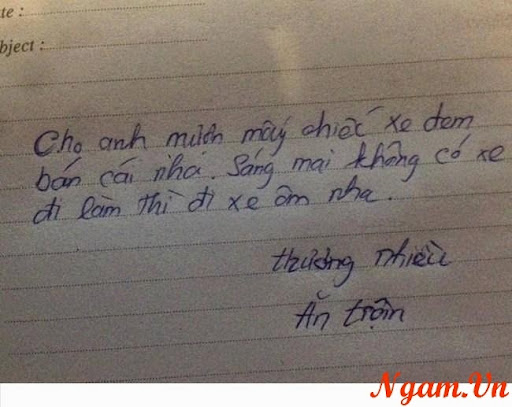 te :
bject :
Cho anh mượn mấy chiếc xe đem
bán cái nha. Sáng mai không có xe
đi làm thì đi xe ôm nha.
thương nhiều
Ăn trộm
Ngam.Vn